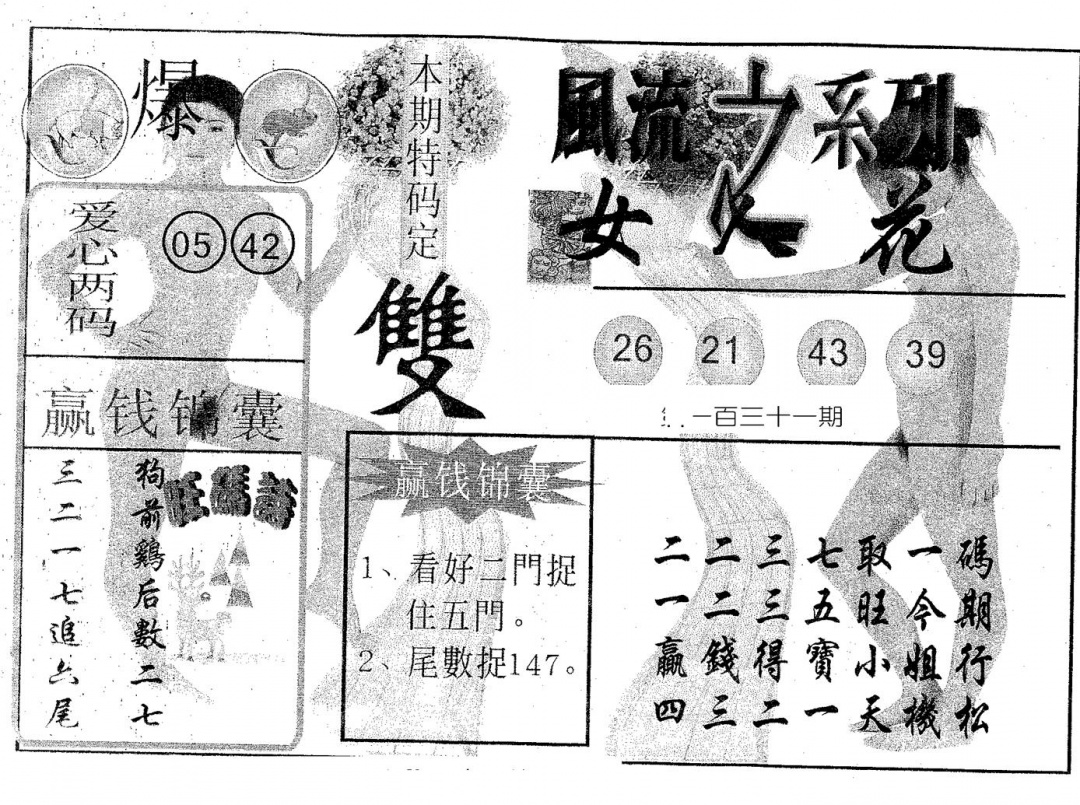 爆
本期特码定
雙
風流之系列
女人花
爱心两码
05 42
26 21 43 39
一百三十一期
赢钱锦囊
狗前鷄后數二七
三二一七追六尾
旺碼詩
赢钱锦囊
1、看好二門捉
住五門。
2、尾數捉147。
碼期行松
一今姐機
取旺小天
七五寶一
三三得二
二二錢三
二一贏四